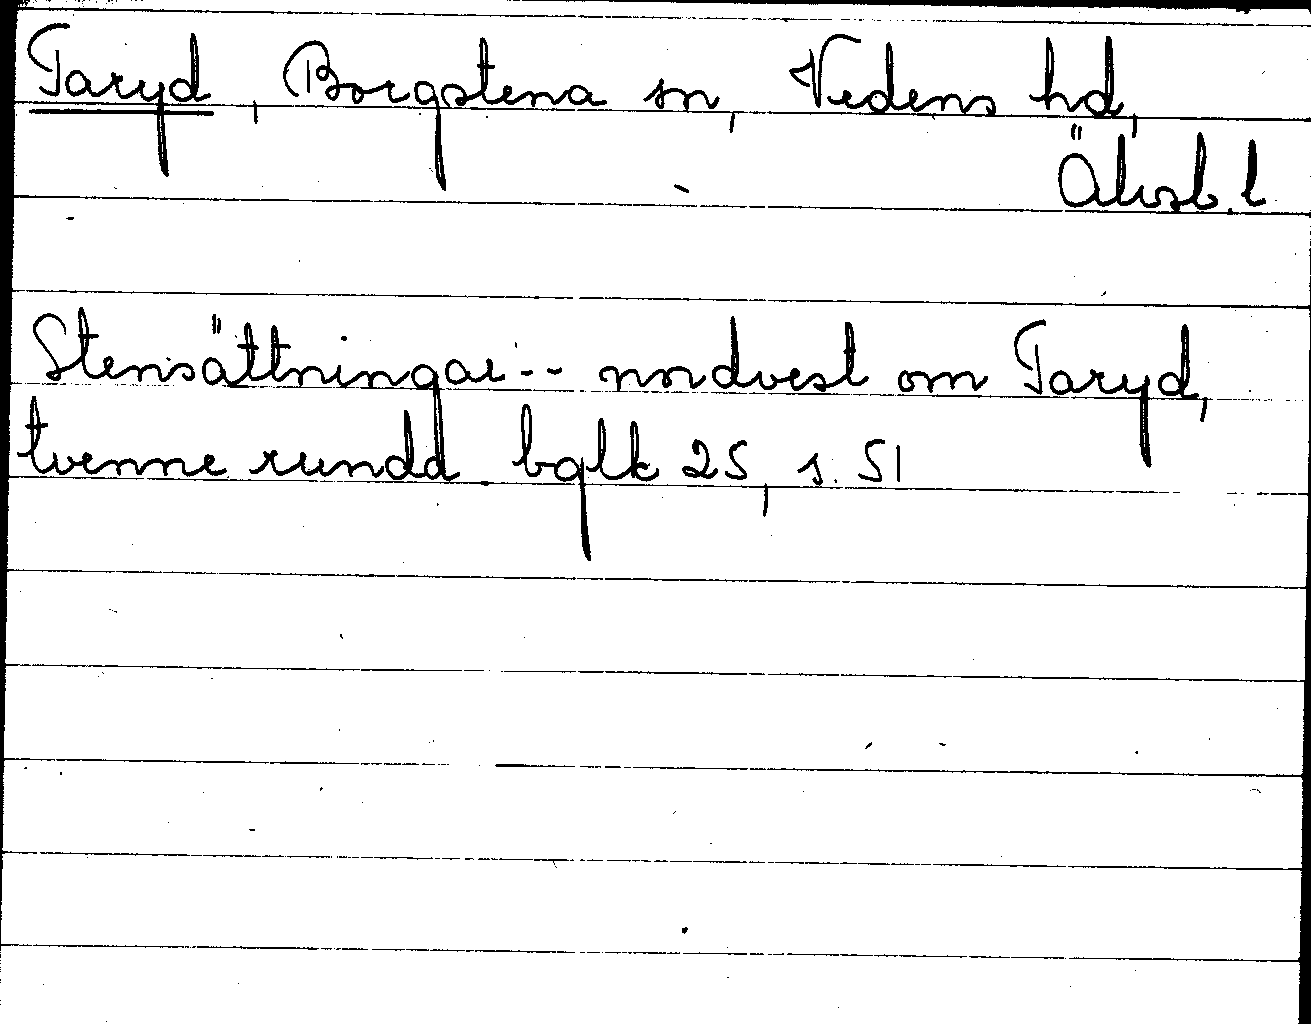 Taryd, Borgstena sn, Vedens hd,
Älvsb. l
Stensättningar -- nordvest om Taryd,
tvenne rundd. bglk 25, s. 51